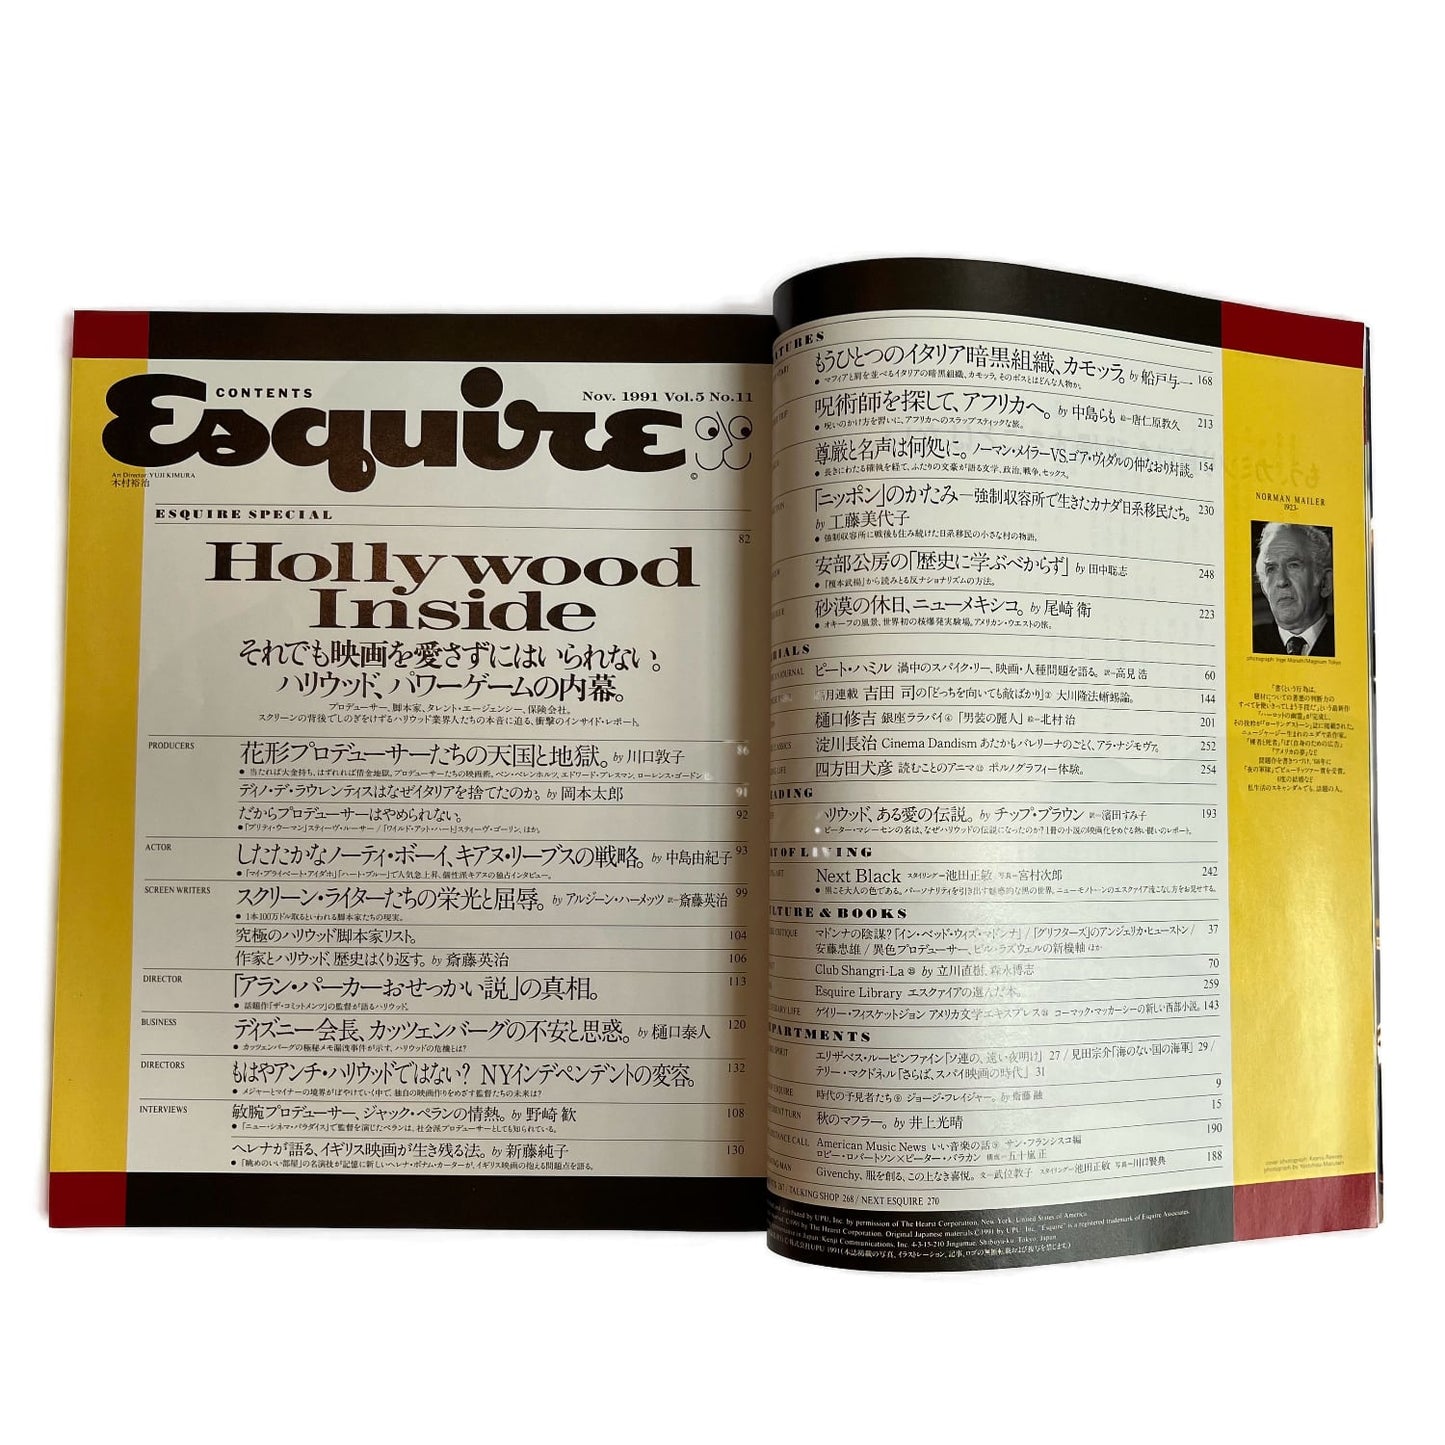 CONTENTS
Esquire
Nov. 1991 Vol.5 No.11
Art Director: YUJI KIMURA
木村裕治
©
ESQUIRE SPECIAL
82
Hollywood
Inside
それでも映画を愛さずにはいられない。
ハリウッド、パワーゲームの内幕。
プロデューサー、脚本家、タレント・エージェンシー、保険会社。
スクリーンの背後でしのぎをけずるハリウッド業界人たちの本音に迫る、衝撃のインサイド・レポート。
PRODUCERS
花形プロデューサーたちの天国と地獄。 by 川口敦子 86
● 当たれば大金持ち、はずれれば借金地獄。プロデューサーたちの映画術。ベン・ベレンホルツ、エドワード・プレスマン、ローレンス・ゴードン
ディノ・デ・ラウレンティスはなぜイタリアを捨てたのか。 by 岡本太郎 91
だからプロデューサーはやめられない。 92
●「プリティ・ウーマン」スティーヴ・ルーサー/「ワイルド・アット・ハート」スティーヴ・ゴーリン、ほか。
ACTOR
したたかなノーティ・ボーイ、キアヌ・リーブスの戦略。 by 中島由紀子 93
●「マイ・プライベート・アイダホ」「ハート・ブルー」で人気急上昇、個性派キアヌの独占インタビュー。
SCREEN WRITERS
スクリーン・ライターたちの栄光と屈辱。 by アルジーン・ハーメッツ 訳—斎藤英治 99
● 1本100万ドル取るといわれる脚本家たちの現実。
究極のハリウッド脚本家リスト。 104
作家とハリウッド、歴史はくり返す。 by 斎藤英治 106
DIRECTOR
「アラン・パーカーおせっかい説」の真相。 113
● 話題作「ザ・コミットメンツ」の監督が語るハリウッド。
BUSINESS
ディズニー会長、カッツェンバーグの不安と思惑。 by 樋口泰人 120
● カッツェンバーグの極秘メモ漏洩事件が示す、ハリウッドの危機とは?
DIRECTORS
もはやアンチ・ハリウッドではない? NYインデペンデントの変容。 132
● メジャーとマイナーの境界がぼやけていく中で、独自の映画作りをめざす監督たちの未来は?
INTERVIEWS
敏腕プロデューサー、ジャック・ペランの情熱。 by 野崎 歓 108
●「ニュー・シネマ・パラダイス」で監督を演じたペランは、社会派プロデューサーとしても知られている。
ヘレナが語る、イギリス映画が生き残る法。 by 新藤純子 130
●「眺めのいい部屋」の名演技が記憶に新しいヘレナ・ボナム・カーターが、イギリス映画の抱える問題点を語る。
もうひとつのイタリア暗黒組織、カモッラ。 by 船戸与一 168
● マフィアと肩を並べるイタリアの暗黒組織、カモッラ。そのボスとはどんな人物か。
呪術師を探して、アフリカへ。 by 中島らも 絵—唐仁原教久 213
● 呪いのかけ方を習いに、アフリカへのスラップスティックな旅。
尊厳と名声は何処に。 ノーマン・メイラーVS.ゴア・ヴィダルの仲なおり対談。 154
● 長きにわたる確執を経て、ふたりの文豪が語る文学、政治、戦争、セックス。
「ニッポン」のかたみ—強制収容所で生きたカナダ日系移民たち。 230
by 工藤美代子
● 強制収容所に戦後も住み続けた日系移民の小さな村の物語。
安部公房の「歴史に学ぶべからず」 by 田中聡志 248
●「榎本武揚」から読みとる反ナショナリズムの方法。
砂漠の休日、ニューメキシコ。 by 尾崎 衛 223
● オキーフの風景、世界初の核爆発実験場。アメリカン・ウエストの旅。
ピート・ハミル 渦中のスパイク・リー、映画・人種問題を語る。 訳—高見 浩 60
吉田 司の「どっちを向いても敵ばかり」② 大川隆法蜥蜴論。 144
樋口修吉 銀座ララバイ④「男装の麗人」 絵—北村 治 201
淀川長治 Cinema Dandism あたかもバレリーナのごとく、アラ・ナジモヴァ。 252
四方田犬彦 読むことのアニマ⑫ ポルノグラフィー体験。 254
ハリウッド、ある愛の伝説。 by チップ・ブラウン 訳—濱田すみ子 193
ピーター・マシーセンの名は、なぜハリウッドの伝説になったのか? 1冊の小説の映画化をめぐる熱い闘いのレポート。
ART OF LIVING
Next Black スタイリング—池田正敏 写真—宮村次郎 242
● 黒こそ大人の色である。パーソナリティを引き出す魅惑的な黒の世界、ニューモノトーンのエスクァイア流こなし方をお見せする。
CULTURE & BOOKS
マドンナの陰謀?「イン・ベッド・ウィズ・マドンナ」/「グリフターズ」のアンジェリカ・ヒューストン/ 37
安藤忠雄/異色プロデューサー、ビル・ラズウェルの新機軸 ほか
Club Shangri-La by 立川直樹、森永博志 70
Esquire Library エスクァイアの選んだ本。 259
ゲイリー・フィスケットジョン アメリカ文学エキスプレス コーマック・マッカーシーの新しい西部小説。 143
DEPARTMENTS
エリザベス・ルービンファイン「ソ連の、遠い夜明け」 27 / 見田宗介「海のない国の海軍」 29 /
テリー・マクドネル「さらば、スパイ映画の時代」 31
時代の予見者たち⑨ ジョージ・フレイジャー。 by 齋藤 融 9
秋のマフラー。 by 井上光晴 15
American Music News いい音楽の話⑨ サン・フランシスコ編 190
ロビー・ロバートソン×ピーター・バラカン 構成—五十嵐 正
Givenchy、服を創る、この上なき喜悦。 文—武位教子 スタイリング—池田正敏 写真—川口賢典 188
/ TALKING SHOP 268 / NEXT ESQUIRE 270
distributed by UPU, Inc. by permission of The Hearst Corporation, New York, United States of America.
©1991 by The Hearst Corporation. Original Japanese materials ©1991 by UPU, Inc. "Esquire" is a registered trademark of Esquire Associates.
Japan: Kenji Communications, Inc. 4-3-15-210 Jingumae, Shibuya-ku, Tokyo, Japan
©株式会社UPU 1991(本誌掲載の写真、イラストレーション、記事、ロゴの無断転載および複写を禁じます)
NORMAN MAILER
1923-
photograph: Inge Morath/Magnum Tokyo
「書くという行為は、
題材についての善悪の判断力の
すべてを使いきってしまう手段だ」という最新作
「ハーロットの幽霊」が完成し、
その抜粋が「ローリングストーン」誌に掲載された。
ニュージャージー生まれのユダヤ系作家。
「裸者と死者」「ぼく自身のための広告」
「アメリカの夢」など
問題作を書きつづけ、'68年に
「夜の軍隊」でピューリッツァー賞を受賞。
6度の結婚など
私生活のスキャンダルでも、話題の人。
cover photograph: Keanu Reeves
photograph by Yoshihisa Marutani